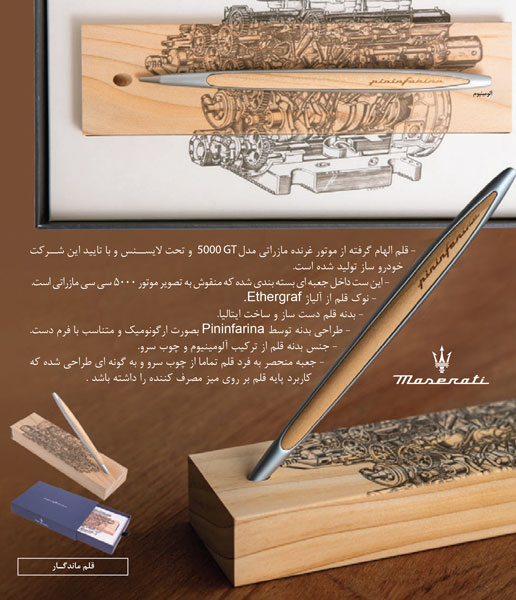 pininfarina
الومینیوم
pininfarina
- قلم الهام گرفته از موتور غرنده مازراتی مدل 5000 GT و تحت لایسنس و با تایید این شرکت
خودرو ساز تولید شده است.
- این ست داخل جعبه ای بسته بندی شده که منقوش به تصویر موتور ۵۰۰۰ سی سی مازراتی است.
- نوک قلم از آلیاژ Ethergraf.
- بدنه قلم دست ساز و ساخت ایتالیا.
- طراحی بدنه توسط Pininfarina بصورت ارگونومیک و متناسب با فرم دست.
- جنس بدنه قلم از ترکیب آلومینیوم و چوب سرو.
- جعبه منحصر به فرد قلم تماما از چوب سرو و به گونه ای طراحی شده که
کاربرد پایه قلم بر روی میز مصرف کننده را داشته باشد .
Maserati
قلم ماندگار